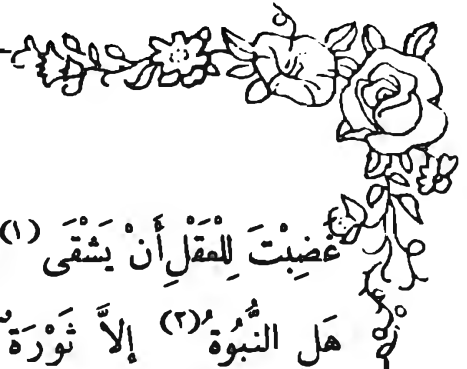 غَضِبْتَ لِلْعَقْلِ أَنْ يَشْقَى (١)
هَل النُّبُوةُ (٢) إلاَّ ثَوْرَةٌ